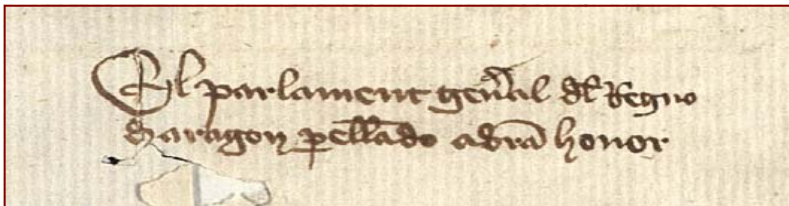 El parlament gen̄al dl̄ Regno
daragon p̱ellado a vr̄a honor